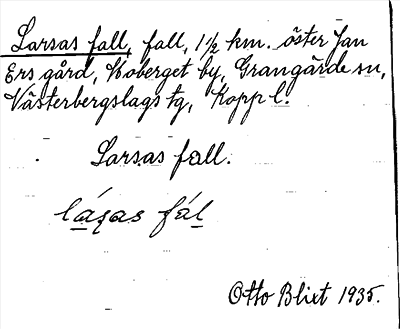 Larsas fall, fall, 1½ km. öster Jan
Ers gård, Moberget by, Grangärde sn,
Västerbergslags tg, Kopp l.
Larsas fall.
lásas fál
Otto Blixt 1935.